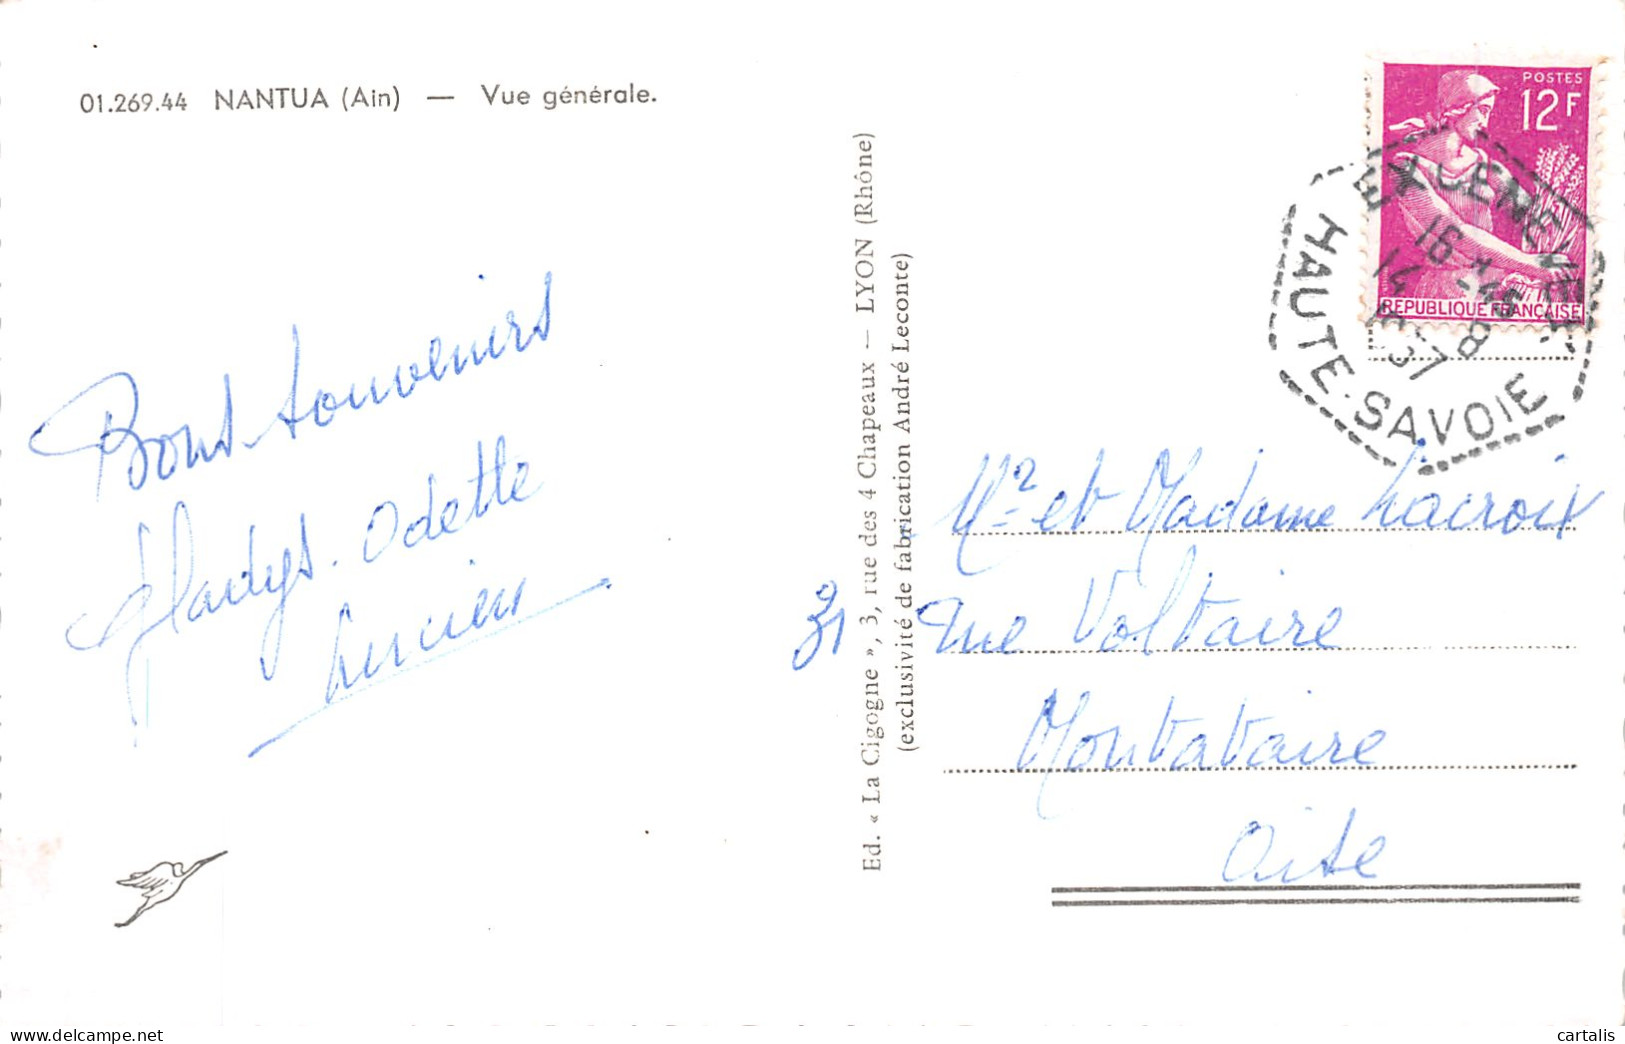 01.269.44 NANTUA (Ain) — Vue générale.
Bons souvenirs
Gladys. Odette
Lucien
Ed. « La Cigogne », 3, rue des 4 Chapeaux — LYON (Rhône)
(exclusivité de fabrication André Leconte)
POSTES
12F
REPUBLIQUE FRANÇAISE
16 H 45
14 8
HAUTE-SAVOIE
Mr et Madame Lacroix
31 rue Voltaire
Montataire
Oise
delcampe.net
cartalis